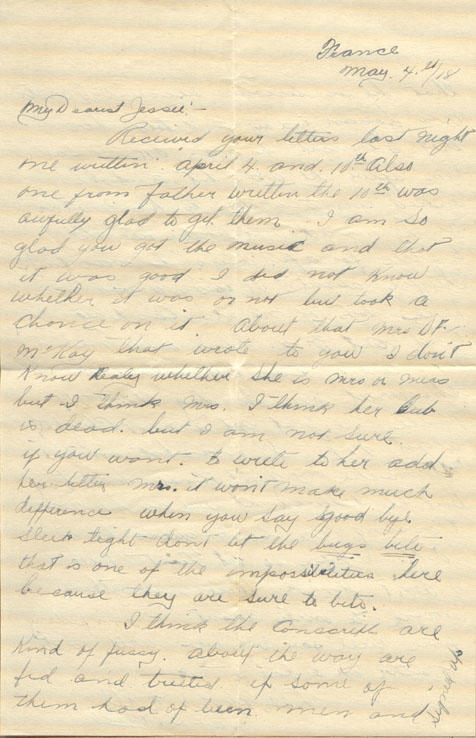 France
May. 4th/18
My Dearest Jessie:-
Received your letters last night
one written april 4 and 10th also
one from father written the 10th was
awfully glad to get them I am so
glad you got the music and that
it was good I did not know
whether it was or not but took a
chance on it. About that Mrs Dr.
McKay that wrote to you I don't
know realy whether she is Mrs or Miss
but I think Mrs. I think her hub
is dead. but I am not sure.
if you want. to write to her add
her letter Mrs. it won't make much
difference when you say good bye
sleep tight don't let the bugs bite
that is one of the impossibilities here
because they are sure to bite.
I think the Conscripts are
kind of fussy. about the way are
fed and treated if some of
them had of been men and
signed up